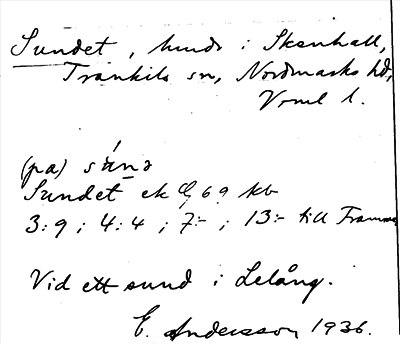 Sundet, hmdr i Skenhall,
Trankils sn, Nordmarks hd,
Vrml l.
(på) sún̲ə
Sundet ek 69 kb
3:9 ; 4:4 ; 7:- ; 13:- till
Vid ett sund i Lelång.
E. Andersson 1936.